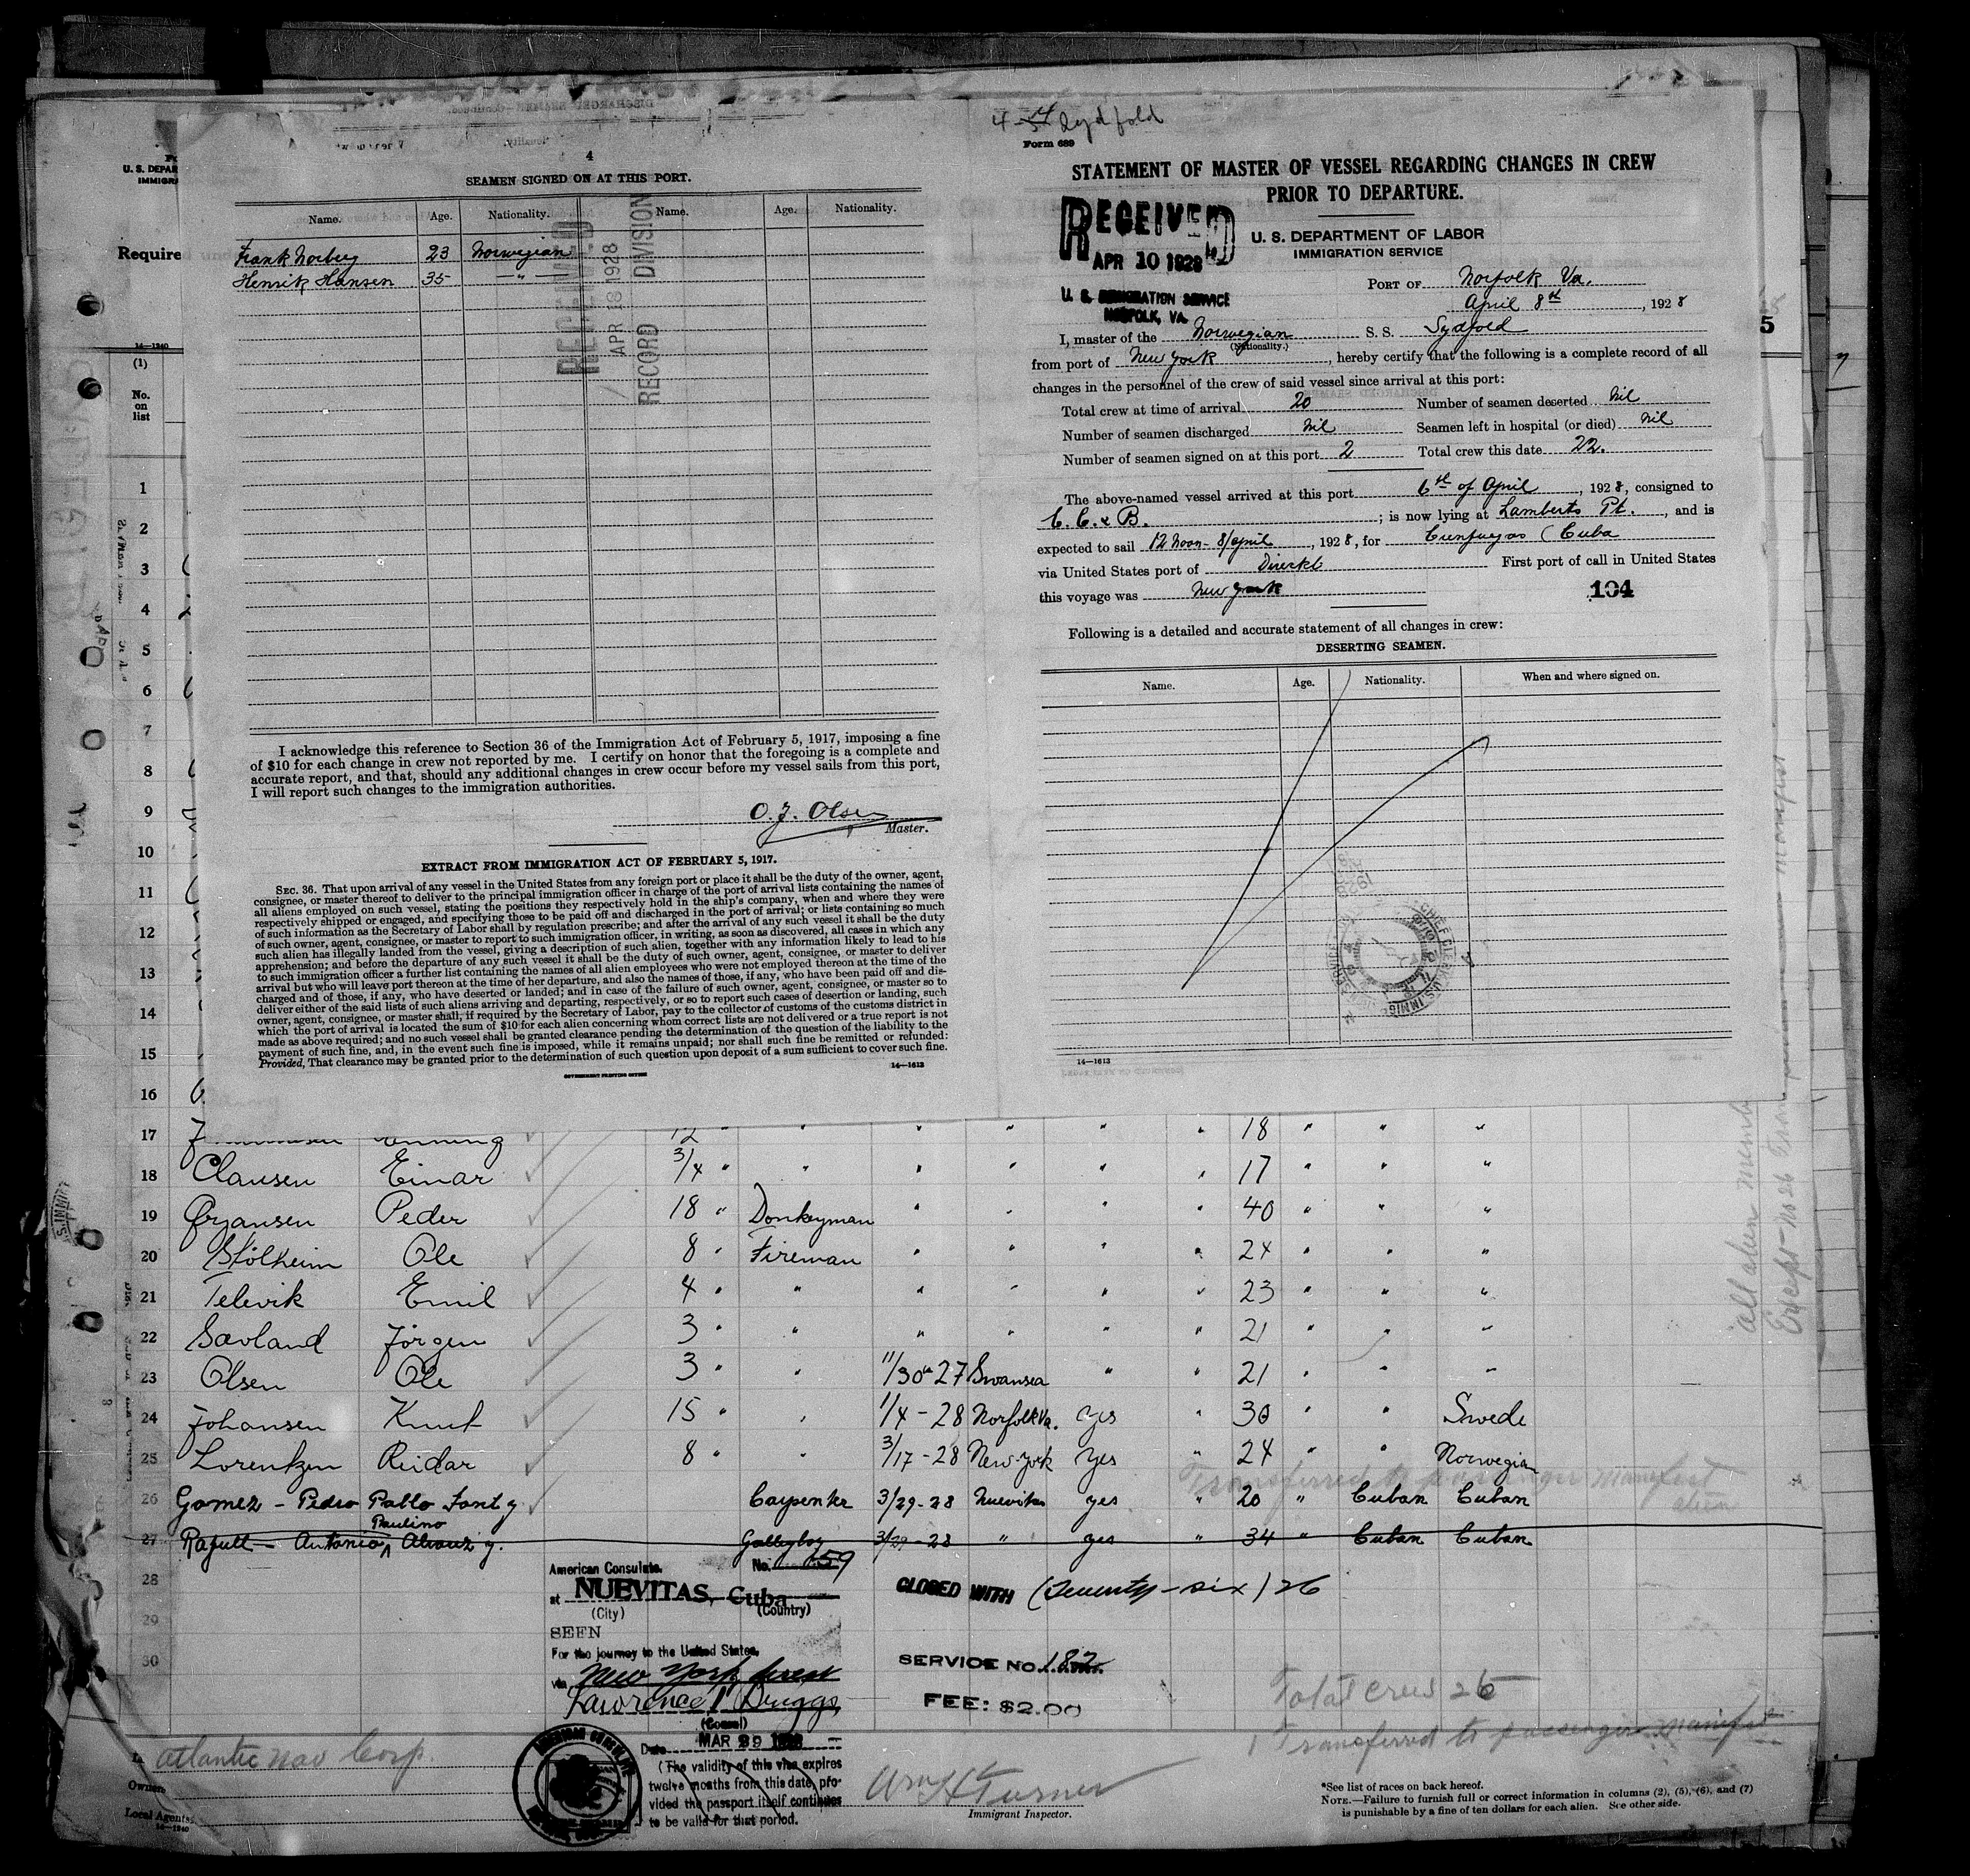 4
SEAMEN SIGNED ON AT THIS PORT.
Name. Age. Nationality. Name. Age. Nationality.
Frank Norberg 23 Norwegian
Henrik Hansen 35 - " -
RECEIVED
APR 18 1928
RECORD DIVISION
I acknowledge this reference to Section 36 of the Immigration Act of February 5, 1917, imposing a fine
of $10 for each change in crew not reported by me. I certify on honor that the foregoing is a complete and
accurate report, and that, should any additional changes in crew occur before my vessel sails from this port,
I will report such changes to the immigration authorities.
O. J. Olsen
Master.
EXTRACT FROM IMMIGRATION ACT OF FEBRUARY 5, 1917.
SEC. 36. That upon arrival of any vessel in the United States from any foreign port or place it shall be the duty of the owner, agent,
consignee, or master thereof to deliver to the principal immigration officer in charge of the port of arrival lists containing the names of
all aliens employed on such vessel, stating the positions they respectively hold in the ship's company, when and where they were
respectively shipped or engaged, and specifying those to be paid off and discharged in the port of arrival; or lists containing so much
of such information as the Secretary of Labor shall by regulation prescribe; and after the arrival of any such vessel it shall be the duty
of such owner, agent, consignee, or master to report to such immigration officer, in writing, as soon as discovered, all cases in which any
such alien has illegally landed from the vessel, giving a description of such alien, together with any information likely to lead to his
apprehension; and before the departure of any such vessel it shall be the duty of such owner, agent, consignee, or master to deliver
to such immigration officer a further list containing the names of all alien employees who were not employed thereon at the time of the
arrival but who will leave port thereon at the time of her departure, and also the names of those, if any, who have been paid off and dis-
charged and of those, if any, who have deserted or landed; and in case of the failure of such owner, agent, consignee, or master so to
deliver either of the said lists of such aliens arriving and departing, respectively, or so to report such cases of desertion or landing, such
owner, agent, consignee, or master shall, if required by the Secretary of Labor, pay to the collector of customs of the customs district in
which the port of arrival is located the sum of $10 for each alien concerning whom correct lists are not delivered or a true report is not
made as above required; and no such vessel shall be granted clearance pending the determination of the question of the liability to the
payment of such fine, and, in the event such fine is imposed, while it remains unpaid; nor shall such fine be remitted or refunded:
Provided, That clearance may be granted prior to the determination of such question upon deposit of a sum sufficient to cover such fine.
GOVERNMENT PRINTING OFFICE
14—1613
Sydfold
Form 689
STATEMENT OF MASTER OF VESSEL REGARDING CHANGES IN CREW
PRIOR TO DEPARTURE.
RECEIVED
APR 10 1928
U. S. IMMIGRATION SERVICE
NORFOLK, VA.
U. S. DEPARTMENT OF LABOR
IMMIGRATION SERVICE
PORT OF Norfolk Va.
April 8th, 1928
I, master of the Norwegian S. S. Sydfold
(Nationality.)
from port of New York, hereby certify that the following is a complete record of all
changes in the personnel of the crew of said vessel since arrival at this port:
Total crew at time of arrival 20 Number of seamen deserted Nil
Number of seamen discharged Nil Seamen left in hospital (or died) Nil
Number of seamen signed on at this port 2 Total crew this date 22.
The above-named vessel arrived at this port 6th of April, 1928, consigned to
C. C. & B.; is now lying at Lamberts Pt., and is
expected to sail 12 Noon - 8/april, 1928, for Cunfuegos (Cuba
via United States port of Direckt First port of call in United States
this voyage was New York
104
Following is a detailed and accurate statement of all changes in crew:
DESERTING SEAMEN.
Name. Age. Nationality. When and where signed on.
14—1613
U. S. DEPAR
IMMIGRA
Require
5
14—1240
(1)
No.
on
list
1
2
3
4
5
6
7
8
9
10
11
12
13
14
15
16
17 12 " " " " " " 18 " " "
18 Clausen Einar 3/4 " " " " " " 17 " " "
19 Ørjansen Peder 18 " Donkeyman " " " " 40 " " "
20 Stölheim Ole 8 " Fireman " " " " 24 " " "
21 Televik Emil 4 " " " " " " 23 " " "
22 Savland Jörgen 3 " " " " " " 21 " " "
23 Olsen Ole 3 " " 11/30-27 Swansea " " 21 " " "
24 Johansen Knut 15 " " 1/4-28 Norfolk Va. yes " 30 " " Swede
25 Lorentzen Reidar 8 " " 3/17-28 New-York yes " 24 " " Norwegian
Transferred to passenger manifest
alien
26 Gomez - Pedro Pablo Font y Carpenter 3/29-28 Nuevitas yes " 20 " Cuban Cuban
Paulino
27 Rafull - Antonio Alvarez y. Galleyboy 3/29-28 " yes " 34 " Cuban Cuban
28
29
30
American Consulate. No. 159
at NUEVITAS, Cuba
(City) (Country)
SEEN
For the journey to the United States,
via New York direct
Lawrence P. Briggs
(Consul)
Date MAR 29 1928
(The validity of this visa expires
twelve months from this date, pro-
vided the passport itself continues
to be valid for that period.
CLOSED WITH (Twenty-six) 26
SERVICE NO. 182
FEE: $2.00
Total crew 26
1 Transferred to passenger manifest
Atlantic Nav Corp.
Owners
Local Agents
14—1240
Wm H Turner
Immigrant Inspector.
*See list of races on back hereof.
NOTE.—Failure to furnish full or correct information in columns (2), (5), (6), and (7)
is punishable by a fine of ten dollars for each alien. See other side.